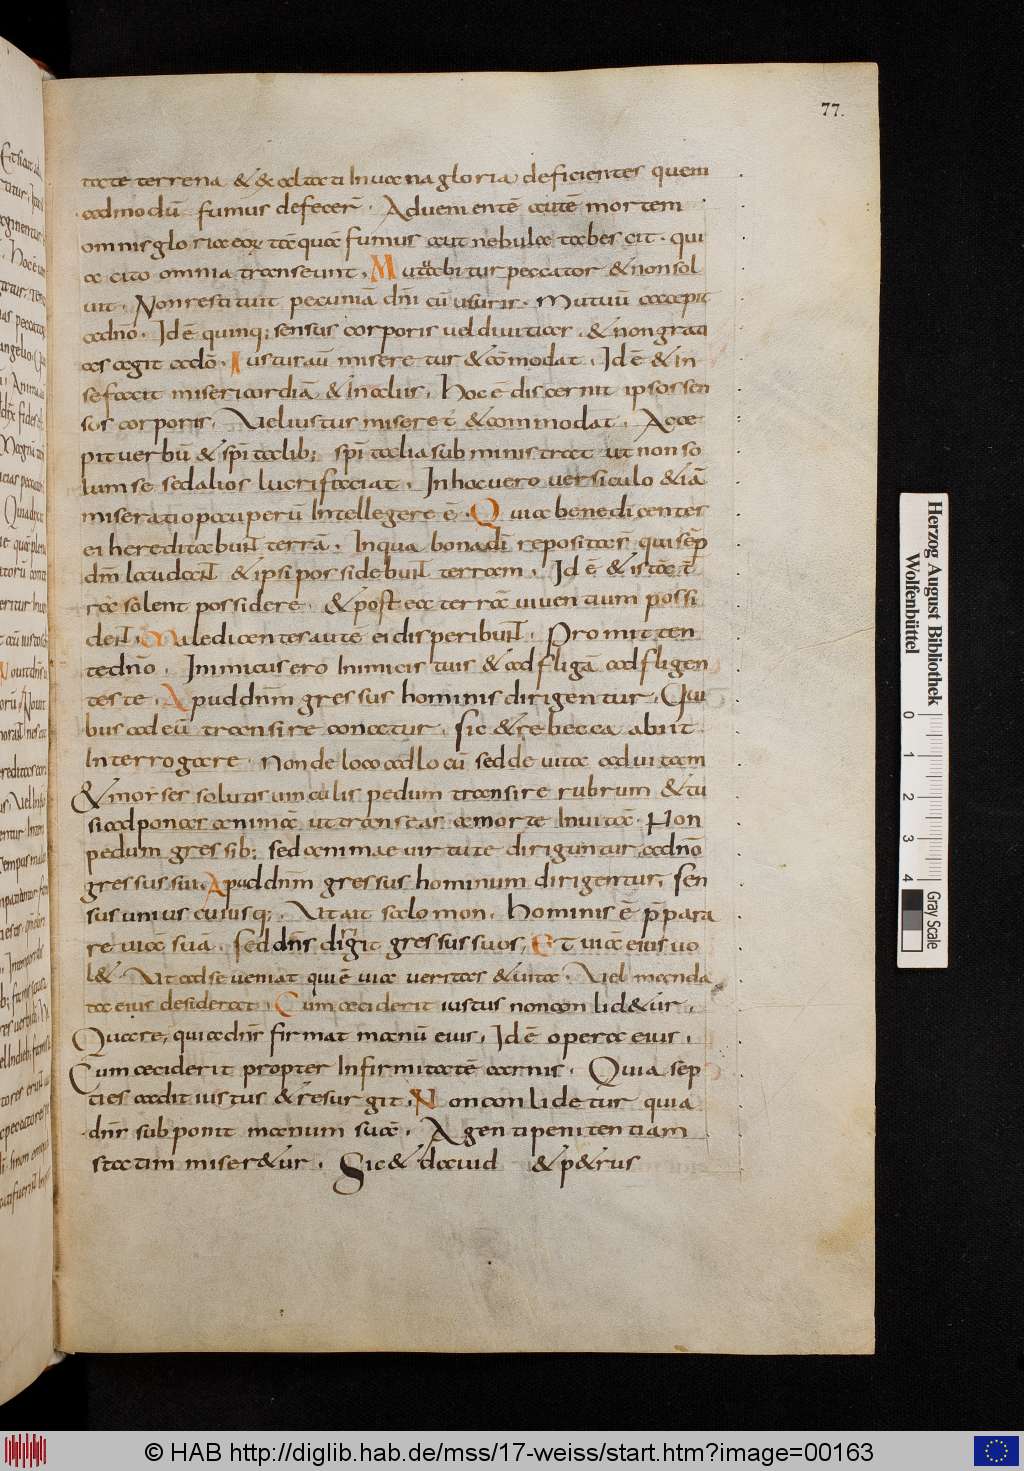 77.
tate terrena & & altati In uana gloria deficientes quem
admodū fumus defecer̄. Aduenientē autē mortem
omnis gloria eoꝝ tā quā fumus aut nebula tabescit. qui
a cito omnia transeunt. Mutuabitur peccator & non sol
uit. Non restituit pecuniā dn̄i cū usuris. Mutuū accepit
adn̄o. Id ē quinq; sensus corporis uel diuitias. & non grati
as agit adō. Iustus aū miseretur & cōmodat. Id ē & in
se facit misericordiā & In aliis. Hoc ē discernit ipsos sen
sus corporis. Vel iustus misere t̄ & commodat. Acce
pit uerbū & sp̄i talib; sp̄i talia subministrat ut non so
lum se sed alios lucrifaciat. In hoc uero uersiculo & iā
miseratio pauperū Intellegere ē. Quia benedicentes
ei hereditabuñt terrā. In qua bona dī reposita s qui sēp
dm̄ laudañt & ipsi possidebuñt terram. Id ē & istā t̄
rā solent possidere. & post ea terrā uiuentium possi
deñt. Maledicentes autē ei disperibuñt. Promitten
te dn̄o. Inimicus ero Inimicis tuis & adfligā adfligen
tes te. Apud dn̄m gressus hominis dirigentur. Qui
bus ad eū transire conatur. sic & rebecca abiit
Interrogare. Non de loco ad locū sed de uita ad uitam
& moyses solutis uinculis pedum transire rubrum & tu
si adponas anima ut transeas a morte In uitā. Non
pedum gressib; sed animae uirtute diriguntur adn̄o
gressus sui. Apud dn̄m gressus hominum dirigentur. sen
sus unius cuiusq;. Ut ait salomon. Hominis ē p̄para
re uiā suā. sed dn̄s dirigit gressus suos. Et uiā eius uo
l&. Ut ad se ueniat qui ē uia ueritas & uita. Vel manda
ta eius desiderat. Cum ceciderit iustus non conlid&ur.
Quare, quia dn̄s firmat manū eius. Id ē opera eius.
Cum ceciderit propter Infirmitatē carnis. Quia sep
ties cadit iustus & resurgit. Non conlidetur quia
dn̄s subponit manum suā. Agenti penitentiam
statim miser&ur. Sic & dauid & p&rus
Herzog August Bibliothek
Wolfenbüttel
0 1 2 3 4
Gray Scale
© HAB http://diglib.hab.de/mss/17-weiss/start.htm?image=00163